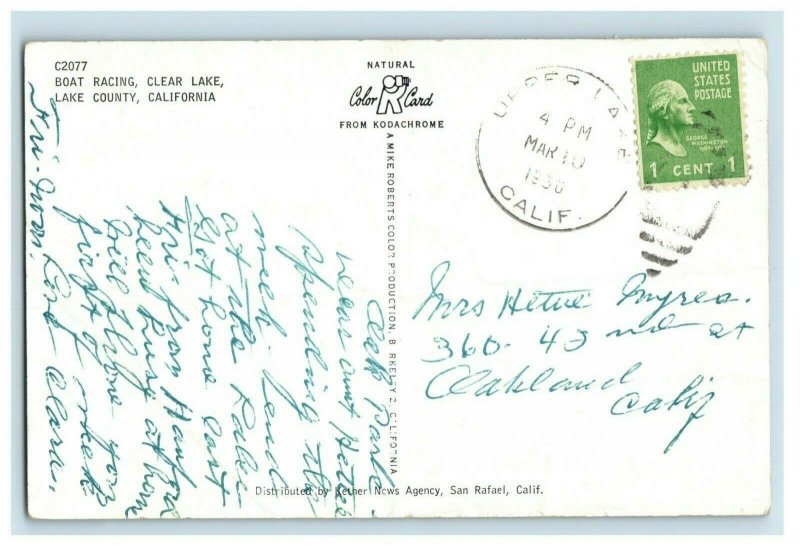 C2077
BOAT RACING, CLEAR LAKE,
LAKE COUNTY, CALIFORNIA
NATURAL
Color Card
FROM KODACHROME
A MIKE ROBERTS COLOR PRODUCTION, B RKELEY 2, CALIFORNIA
UPPER LAKE
4 PM
MAR 10
CALIF.
UNITED
STATES
POSTAGE
GEORGE
WASHINGTON
1789-1797
1 CENT 1
Dear Aunt Hettie
spending the
week-end
at the
Got home last
Fri. from Hanford
been busy at home
Will phone you
first of week
Love Clara.
Mrs Hettie
360-42nd st
Oakland
Calif
Distributed by Kether News Agency, San Rafael, Calif.